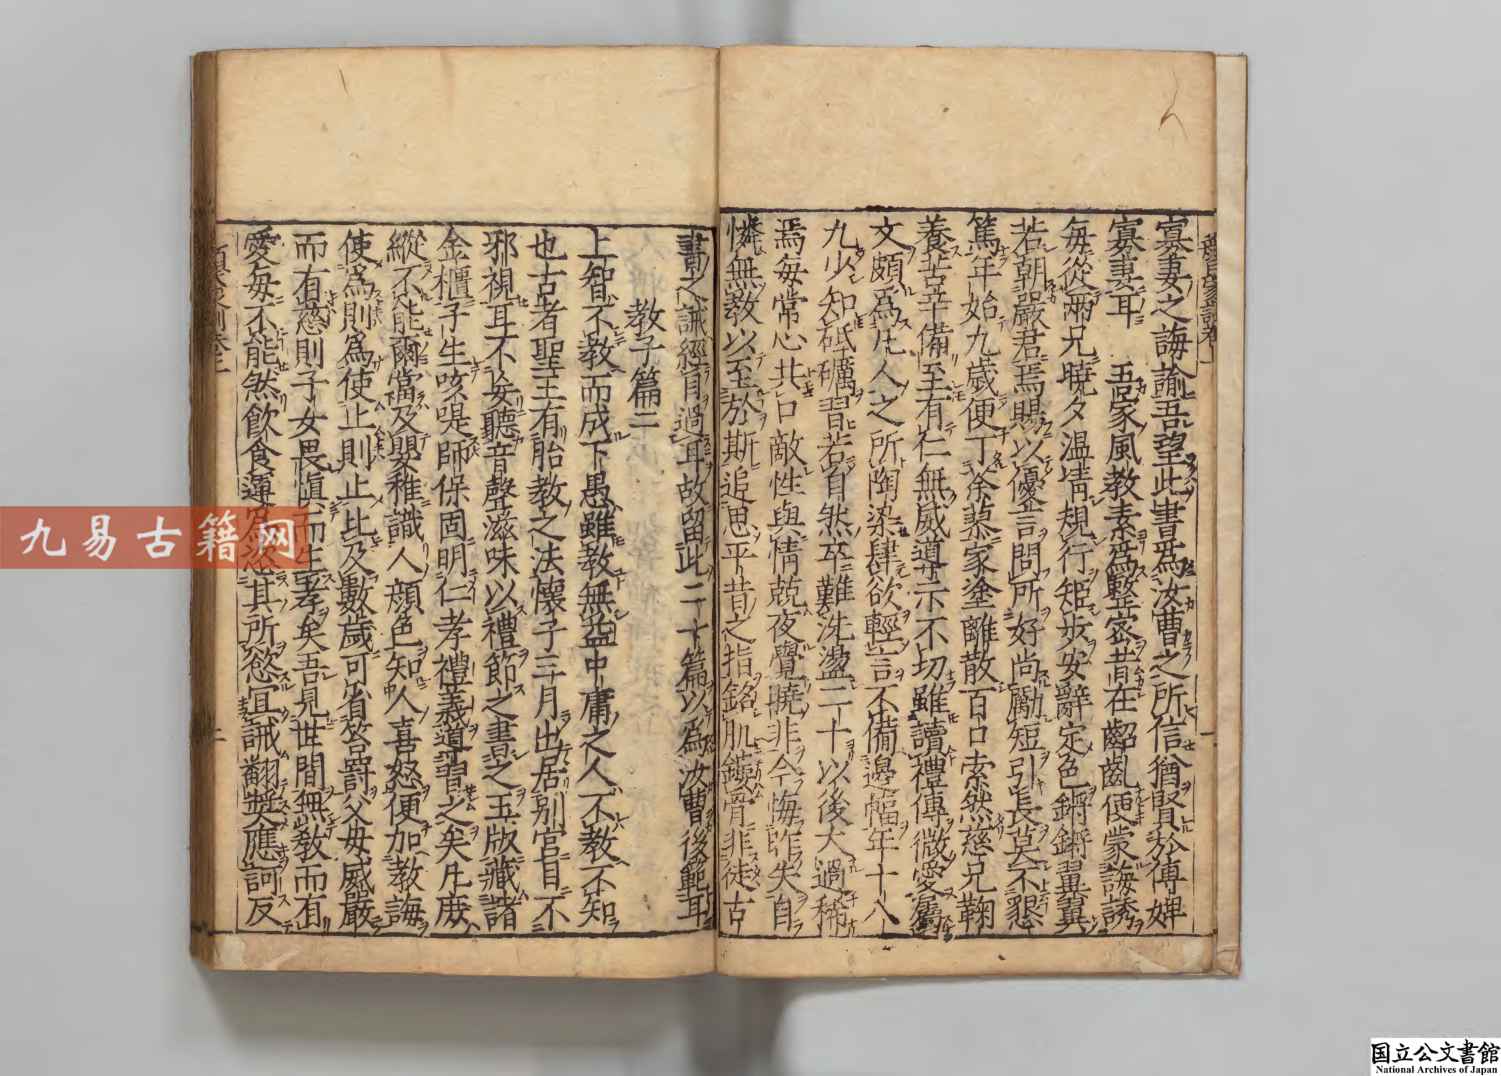 寡妻之誨諭吾望此書爲汝曹之所信猶賢於傅婢
寡妻耳 吾家風教素爲整宻昔在齠齔便蒙誨誘
每從兩兄曉夕温凊規行矩步安辭定色鏘鏘翼翼
若朝嚴君焉賜以優言問所好尚勵短引長莫不懇
篤年始九歲便丁荼蓼家塗離散百口索然慈兄鞠
養苦辛備至有仁無威導示不切雖讀禮傳微愛屬
文頗爲凡人之所陶染肆欲輕言不備邊幅年十八
九少知砥礪習若自然卒難洗盪二十以後大過稀
焉每常心共口敵性與情兢夜覺曉非今悔昨失自
憐無教以至於斯追思平昔之指銘肌鏤骨非徒古
書之誡經目過耳故留此二十篇以爲汝曹後範耳
教子篇二
上智不教而成下愚雖教無益中庸之人不教不知
也古者聖王有胎教之法懷子三月出居别宫目不
邪視耳不妄聽音聲滋味以禮節之書之玉版藏諸
金櫃子生咳㖷師保固明仁孝禮義導習之矣凡庻
縱不能爾當及嬰稚識人顔色知人喜怒便加教誨
使爲則爲使止則止比及數歲可省笞罰父母威嚴
而有慈則子女畏慎而生孝矣吾見世間無教而有
愛每不能然飲食運爲恣其所慾宜誡翻奬應訶反
九易古籍网
国立公文書館
National Archives of Japan